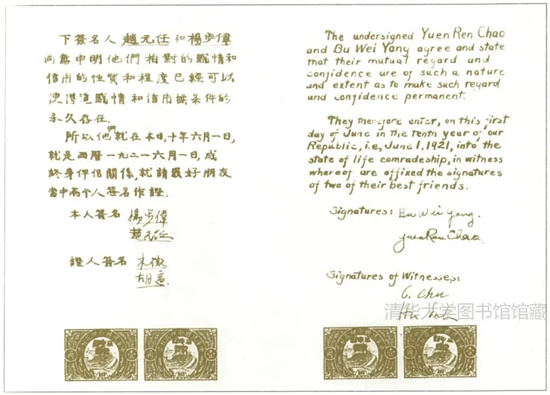 下簽名人趙元任和楊步偉
同意申明他們相對的感情和
信用的性質和程度已經可以
使得這感情和信用無條件的
永久存在.
所以他們就在本日,十年六月一日,
就是西曆一九二一六月一日,成
終身伴侶關係,就請最好朋友
當中兩個人簽名作證.
本人簽名 楊步偉
趙元任
證人簽名 朱徵
胡適
The undersigned Yuen Ren Chao
and Bu Wei Yang agree and state
that their mutual regard and
confidence are of such a nature
and extent as to make such regard
and confidence permanent.
They therefore enter, on this first
day of June in the tenth year of our
Republic, i.e., June 1, 1921, into the
state of life comradeship, in witness
whereof are affixed the signatures
of two of their best friends.
Signatures: Bu Wei Yang.
Yuen Ren Chao
Signatures of Witnesses:
C. Chu
Hu Suh
清华大学图书馆馆藏